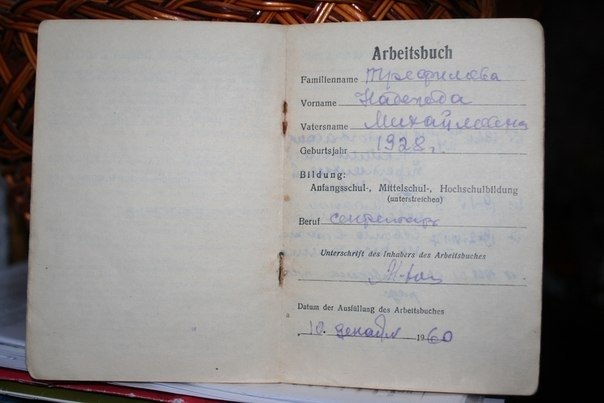 Arbeitsbuch
Familienname Трефилова
Vorname Надежда
Vatersname Михайловна
Geburtsjahr 1928 г.
Bildung:
Anfangsschul-, Mittelschul-, Hochschulbildung
(unterstreichen)
Beruf секретарь
Unterschrift des Inhabers des Arbeitsbuches
Datum der Ausfüllung des Arbeitsbuches
10. декабря 1960